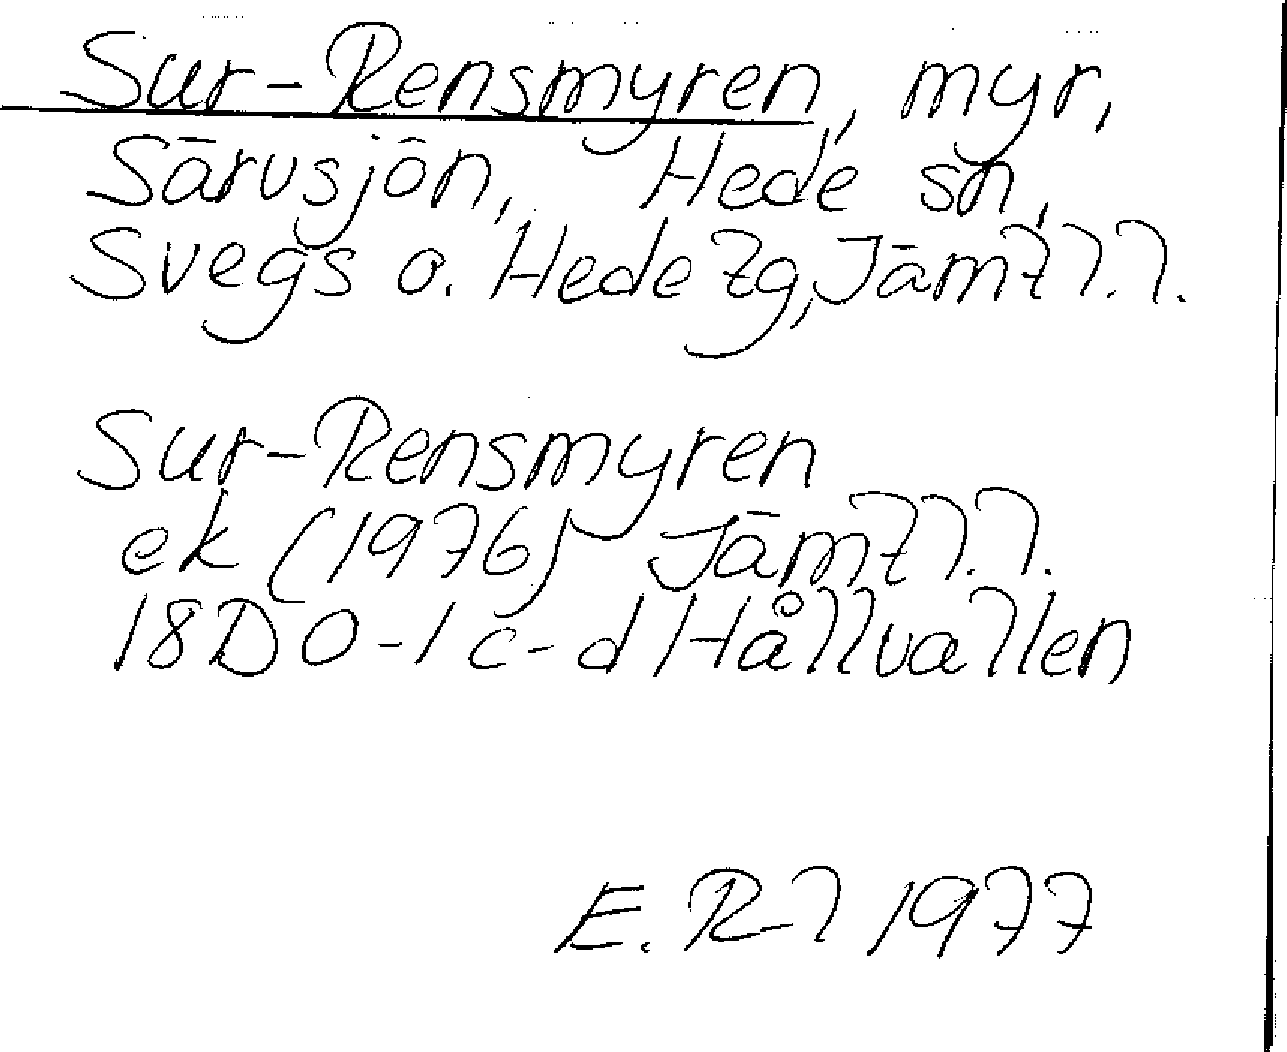 Sur-Rensmyren, myr,
Särvsjön, Hede sn,
Svegs o. Hede tg, Jämtl.l.
Sur-Rensmyren
ek (1976) Jämtl.l.
18D 0-1 c-d Hållvallen
E. R-l 1977